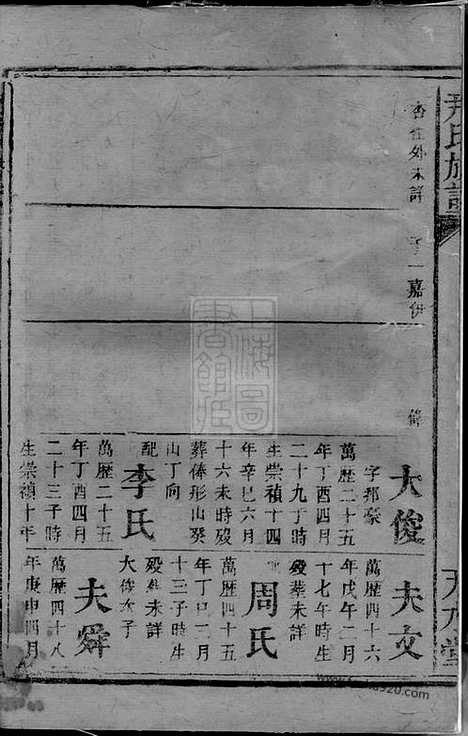 尹氏族譜
外未詳
子一嘉
大俊
字邦豪
萬歷二十五
年丁酉四月
二十九丁時
生崇禎十四
年辛巳六月
十六未時歿
葬俸形山癸
山丁向
配
李氏
萬歷二十五
年丁酉四月
二十三子時
生崇禎十年
夫文
萬歷四十六
年戊午二月
十七午時生
歿葬未詳
周氏
萬歷四十五
年丁巳二月
十三子時生
歿葬未詳
大俊次子
夫舜
萬歷四十八
年庚申四月
上海圖書館藏